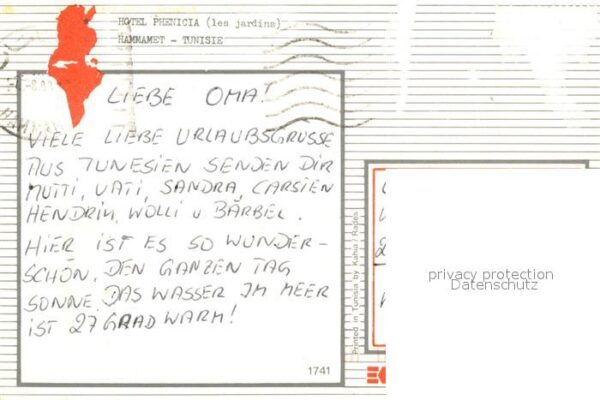 HOTEL PHENICIA (les jardins)
HAMMAMET - TUNISIE
LIEBE OMA!
VIELE LIEBE URLAUBSGRÜSSE
AUS TUNESIEN SENDEN DIR
MUTTI, VATI, SANDRA, CARSTEN
HENDRIK, WOLLI u BÄRBEL.
HIER IST ES SO WUNDER-
SCHÖN. DEN GANZEN TAG
SONNE. DAS WASSER IM MEER
IST 27 GRAD WARM!
1741
Printed in Tunisia by Kahia / Rades
privacy protection
Datenschutz